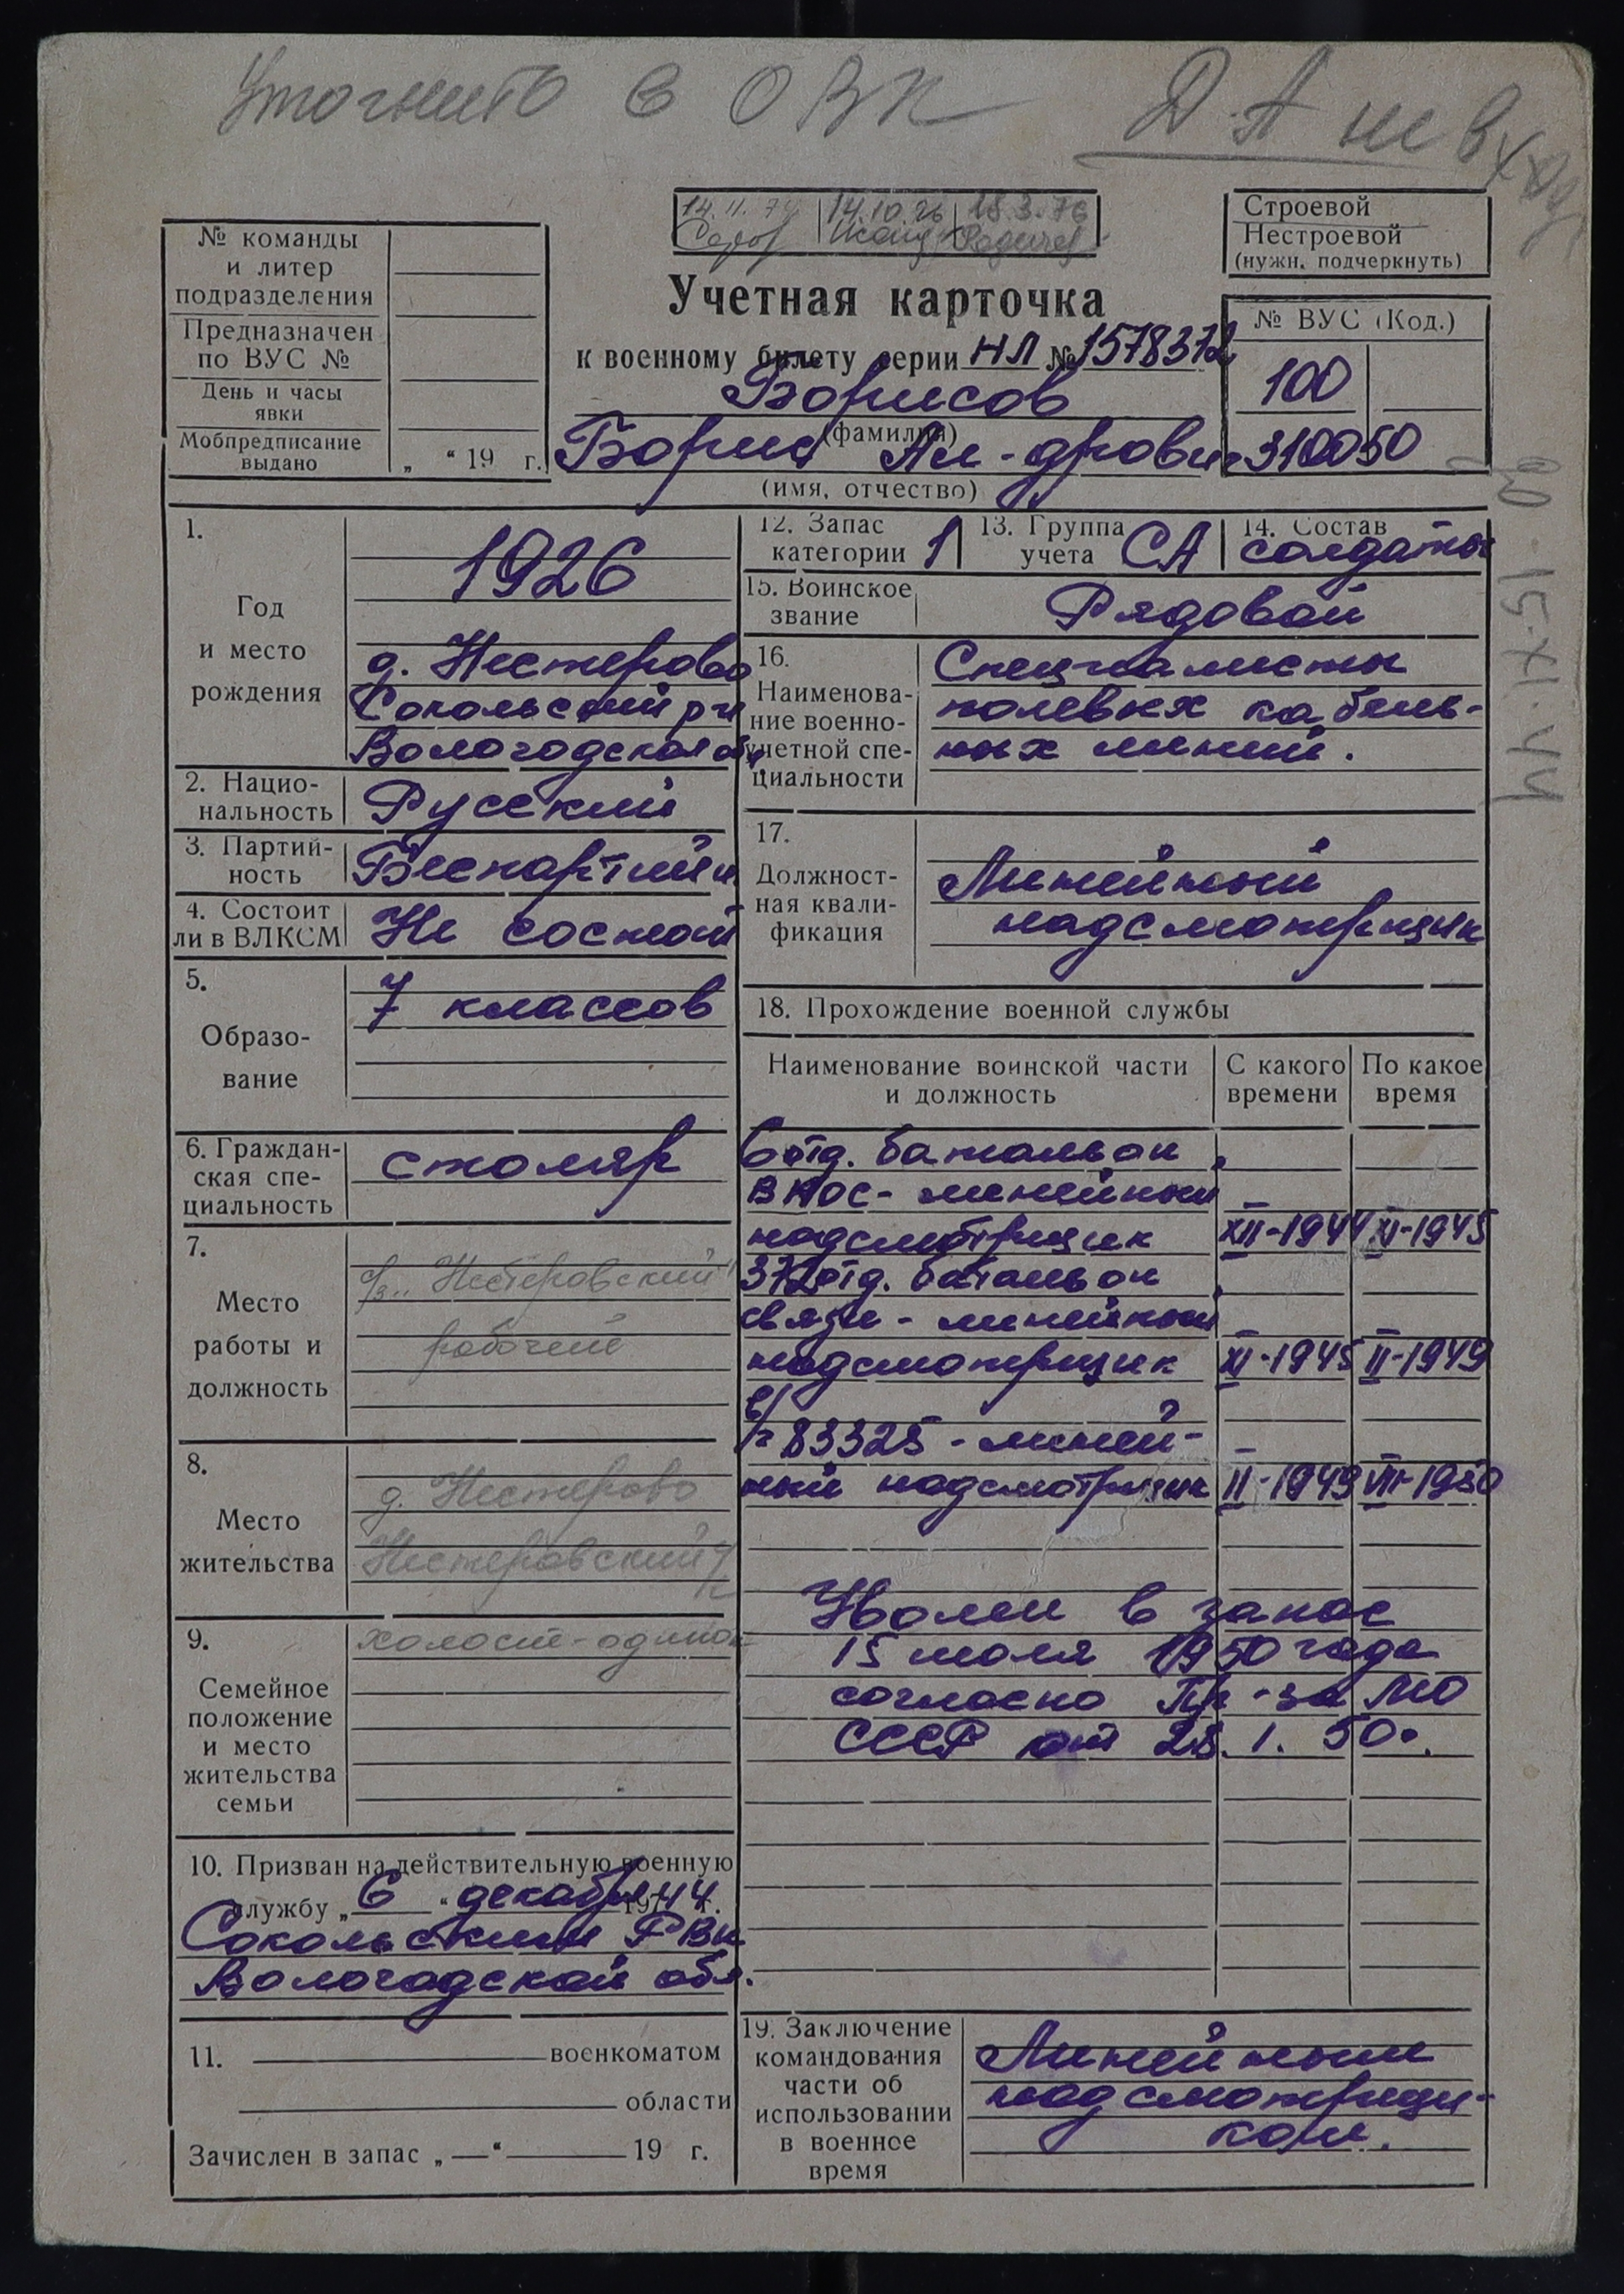 Уточнить в ОВК
ДА не вход
14.11.74 14.10.76 18.3.76
Строевой
Нестроевой
(нужн. подчеркнуть)
№ команды
и литер
подразделения
Предназначен
по ВУС №
День и часы
явки
Мобпредписание
выдано „ “ 19 г.
Учетная карточка
к военному билету серии НЛ № 1578372
Борисов
(фамилия)
Борис Ал-дрович
(имя, отчество)
№ ВУС (Код.)
100
310050
1.
Год
и место
рождения
1926
д. Нестерово
Сокольский р-н
Вологодская обл.
2. Нацио-
нальность
Русский
3. Партий-
ность
Беспартийн
4. Состоит
ли в ВЛКСМ
Не состоит
5.
Образо-
вание
7 классов
6. Граждан-
ская спе-
циальность
столяр
7.
Место
работы и
должность
с/з „Нестеровский“
рабочий
8.
Место
жительства
д. Нестерово
Нестеровский
9.
Семейное
положение
и место
жительства
семьи
холост-одинок
10. Призван на действительную военную
службу „ 6 “ декабря 1944 г.
Сокольским РВК
Вологодской обл.
11. военкоматом
области
Зачислен в запас „ — “ 19 г.
12. Запас
категории 1
13. Группа
учета СА
14. Состав
солдаты
15. Воинское
звание
Рядовой
16.
Наименова-
ние военно-
учетной спе-
циальности
Специалисты
полевых кабель-
ных линий.
17.
Должност-
ная квали-
фикация
Линейный
надсмотрщик
18. Прохождение военной службы
Наименование воинской части
и должность
С какого
времени
По какое
время
6 отд. батальон
ВНОС - линейный
надсмотрщик XII-1944 XI-1945
372 отд. батальон
связи - линейный
надсмотрщик XI-1945 II-1949
в/ч 83325 - линей-
ный надсмотрщик II-1949 VII-1950
Уволен в запас
15 июля 1950 года
согласно Пр-за МО
СССР от 28.1.50.
19. Заключение
командования
части об
использовании
в военное
время
Линейным
надсмотрщи-
ком.
15-XI-44